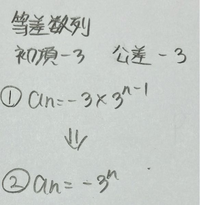 等差数列
初項-3 公差-3
① an=-3×3^{n-1}
⇓
② an=-3^n